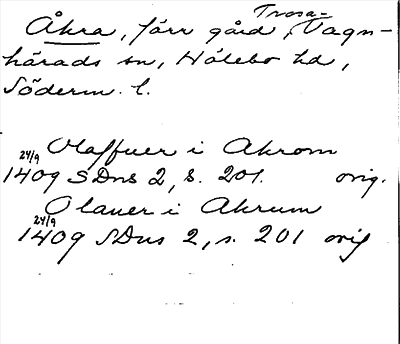 Åkra, förr gård, Trosa-Vagn-
härads sn, Hölebo hd,
Söderm. l.
Olaffuer i Akrom
24/9 1409 SDns 2, s. 201. orig.
Olauer i Akrum
24/9 1409 SDns 2, s. 201 orig